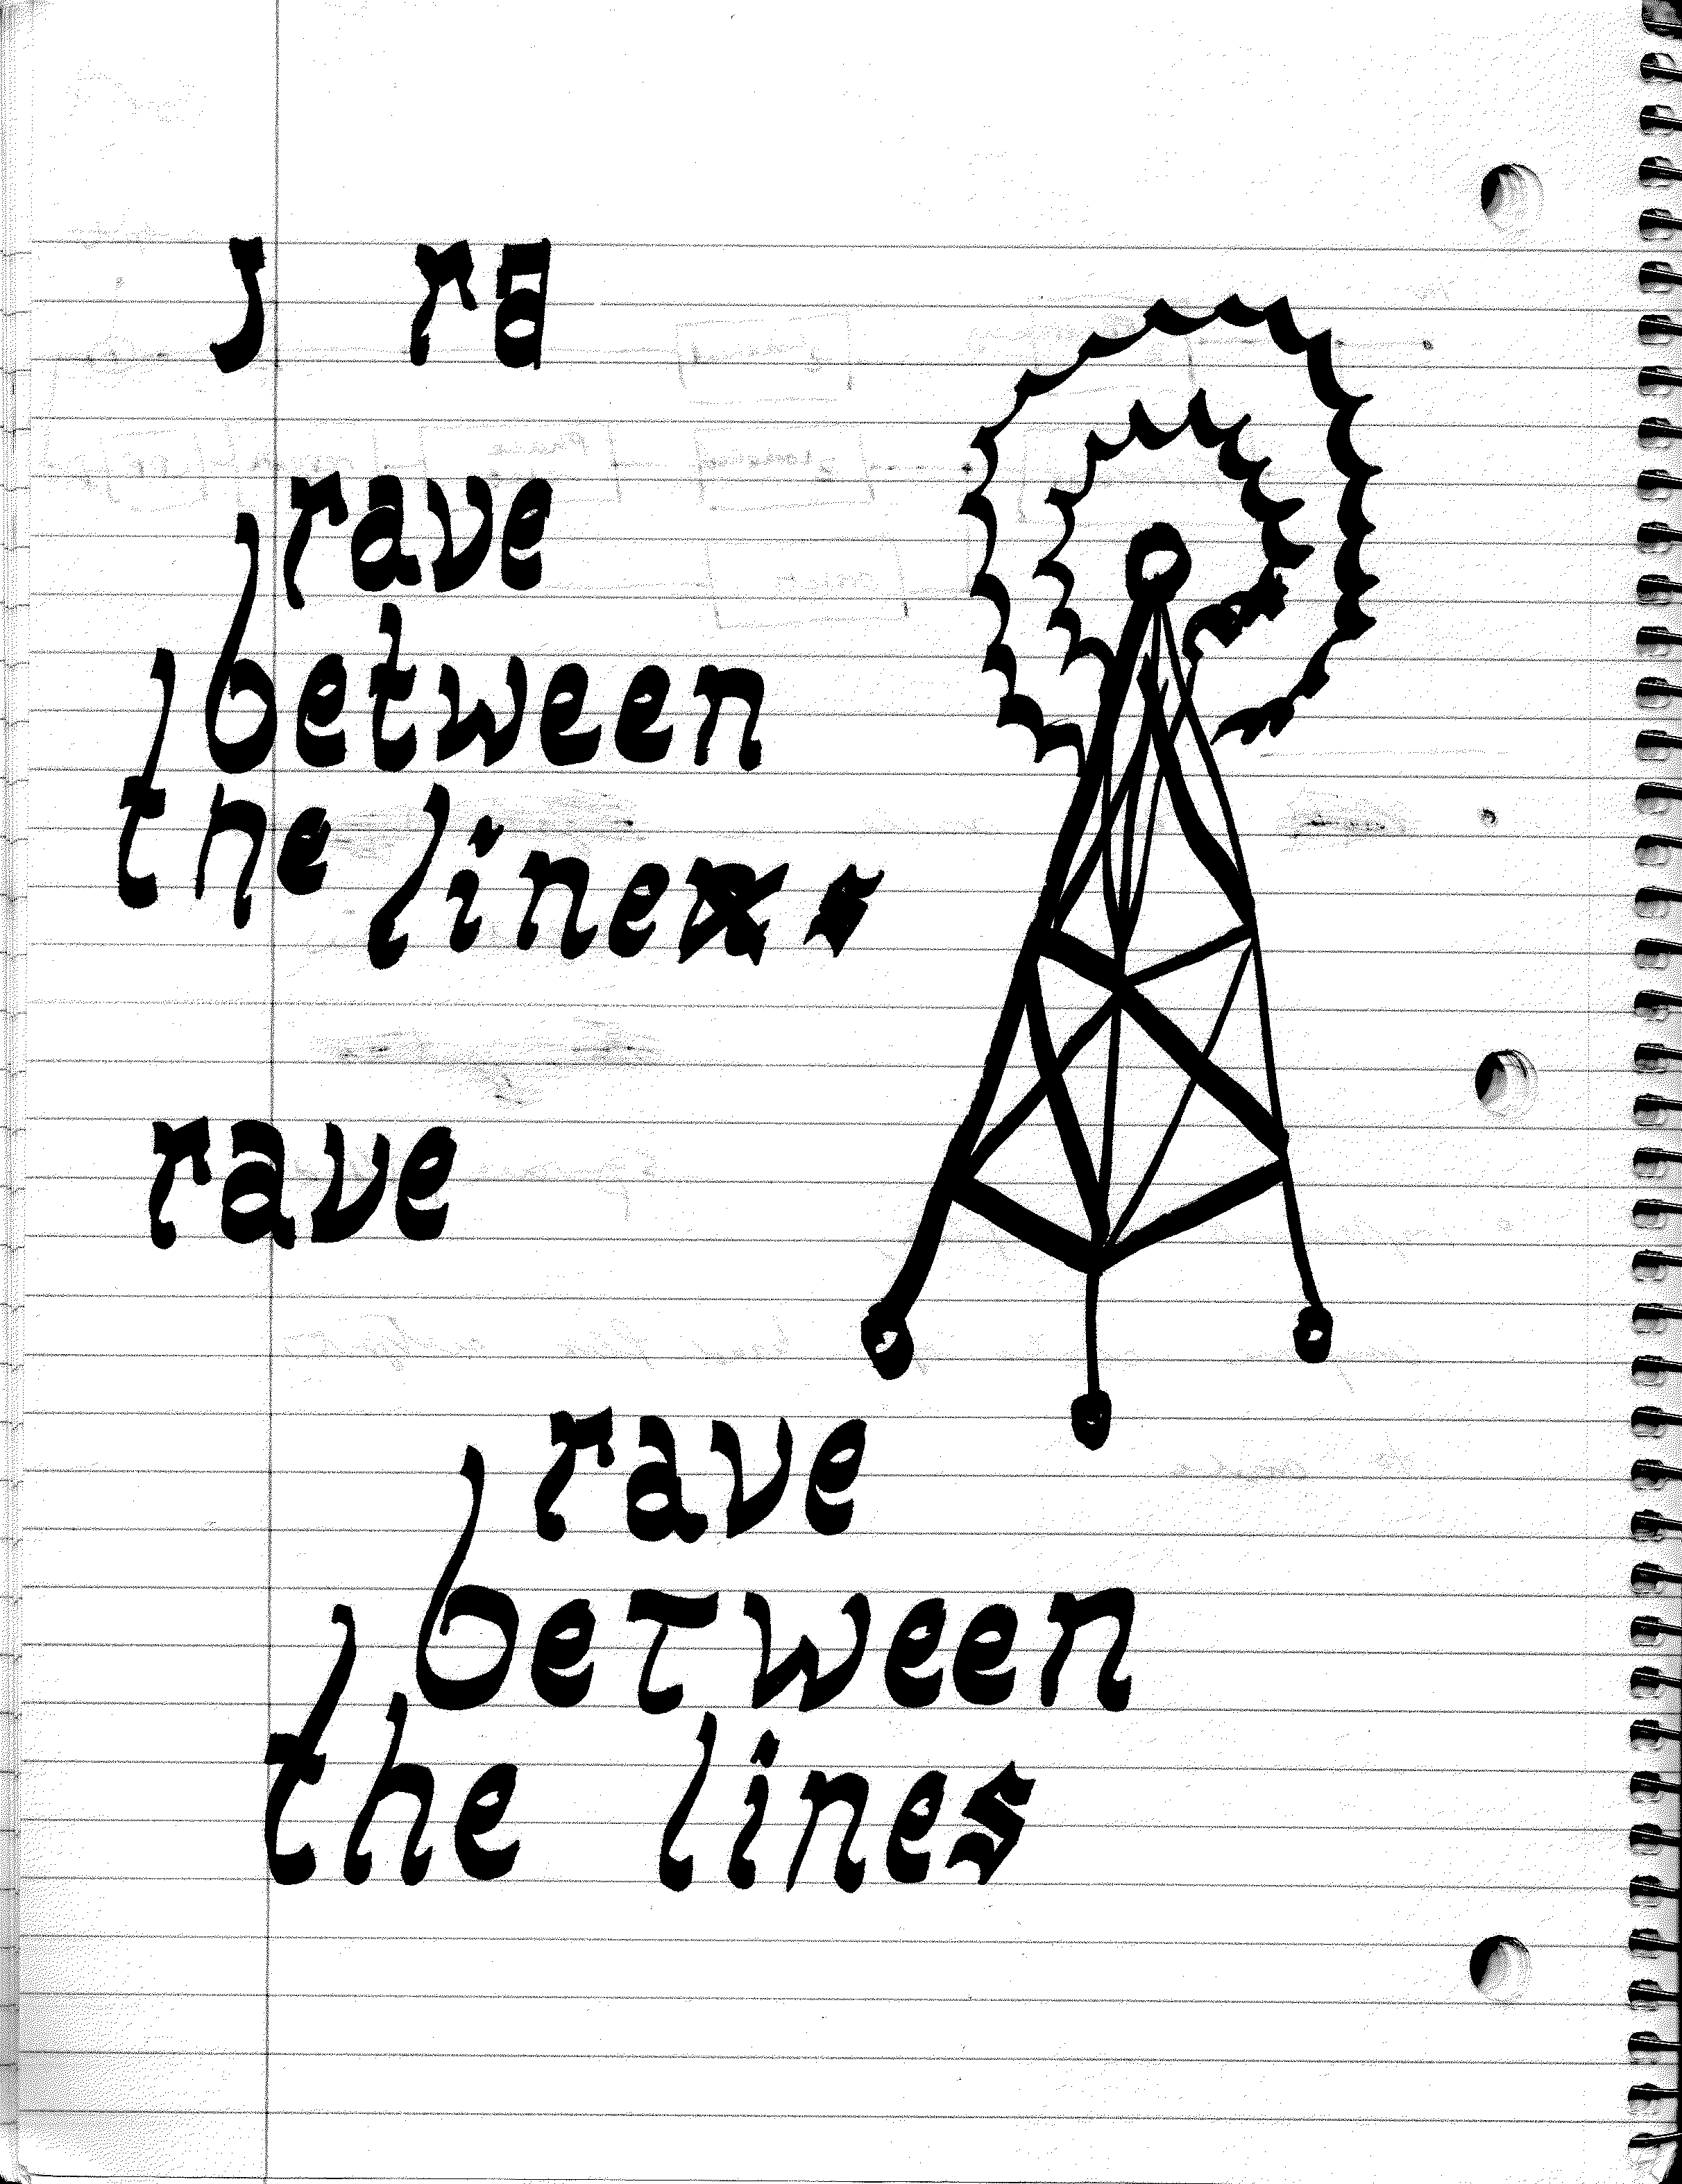 J ra
rave
between
the lines
rave
rave
between
the lines